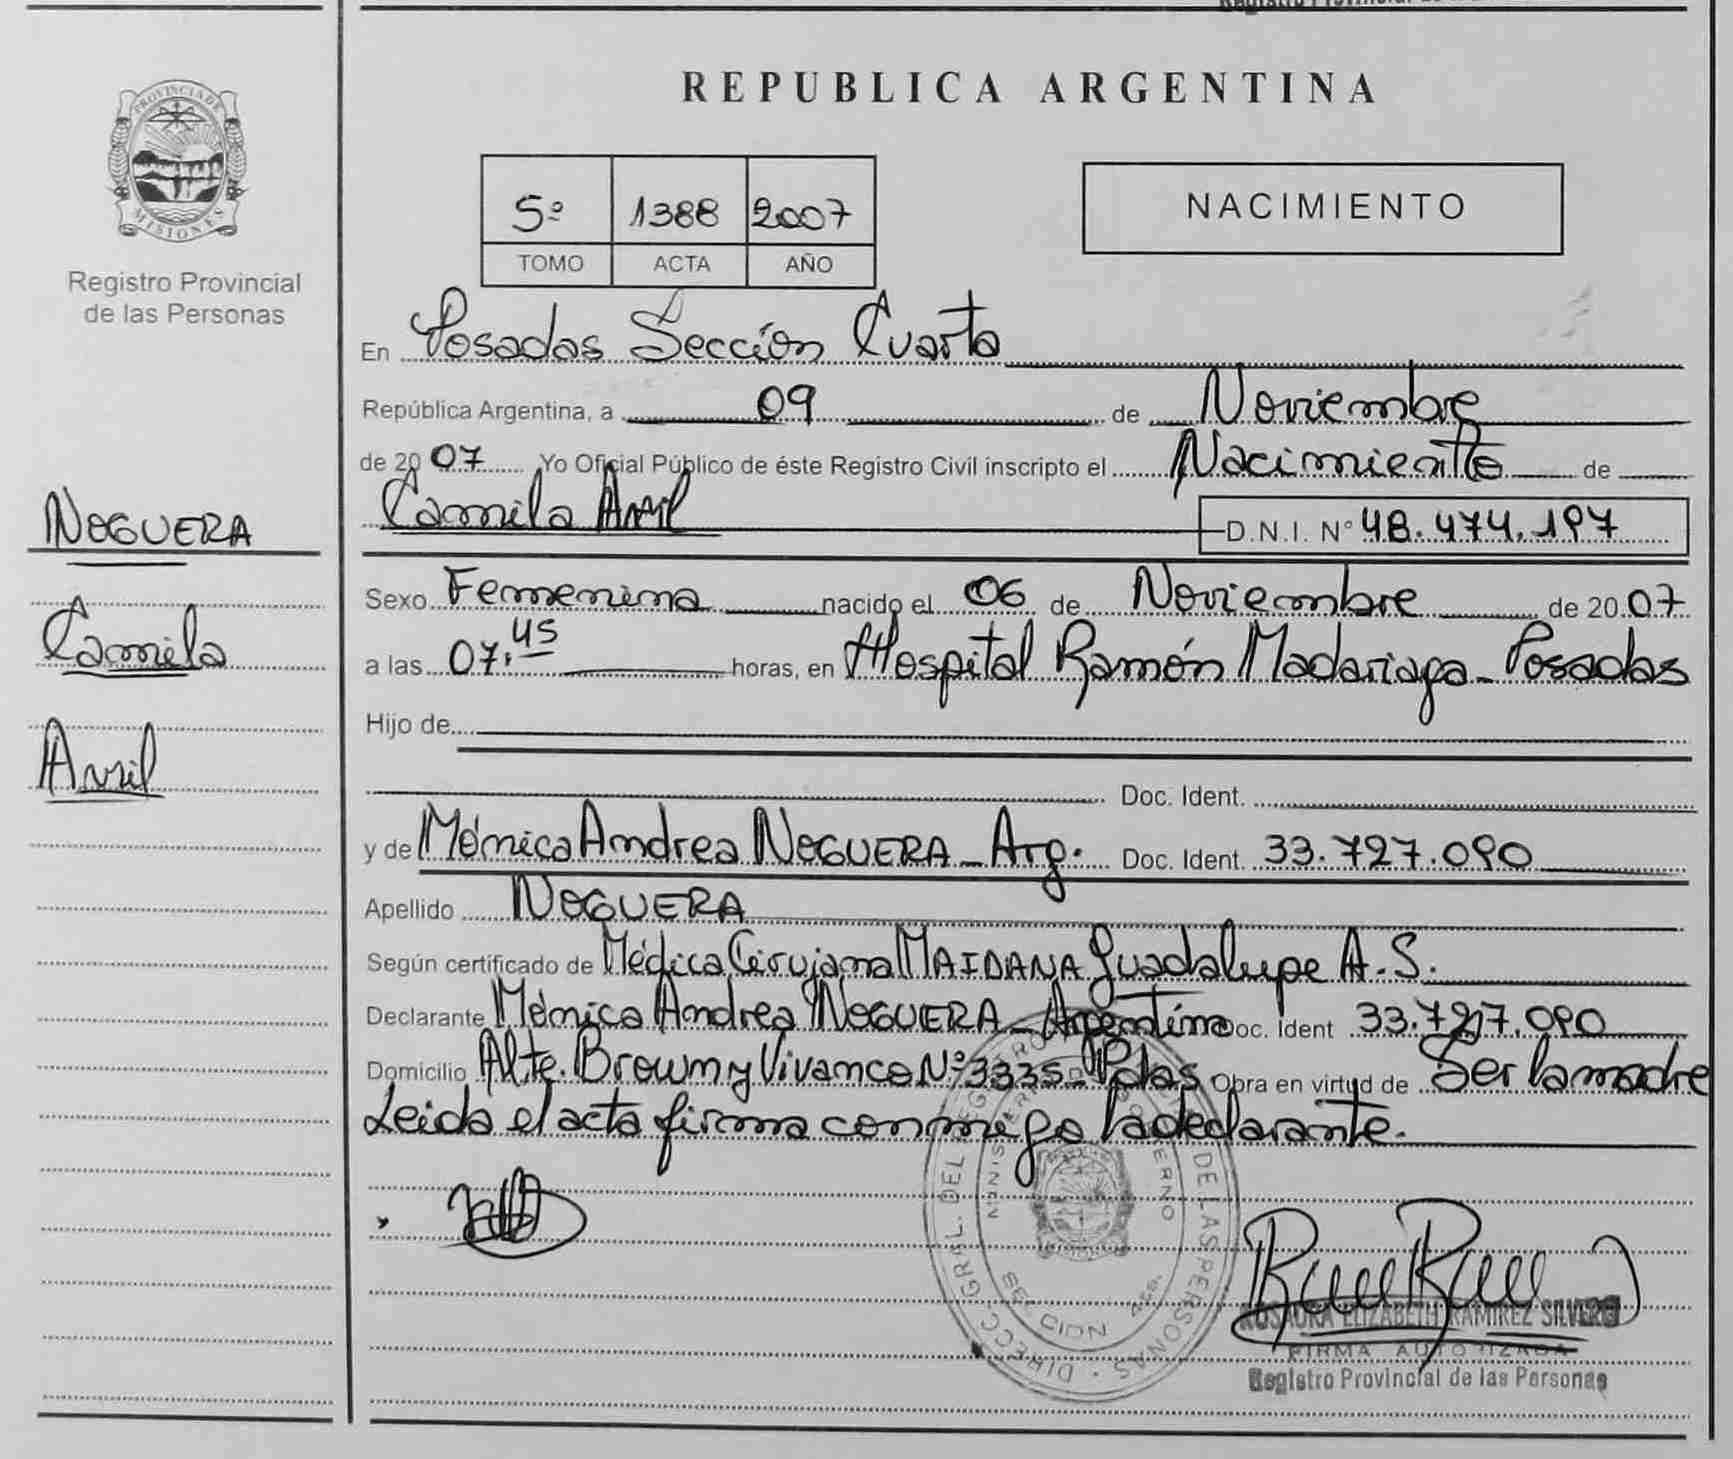 REPUBLICA ARGENTINA
PROVINCIA DE
MISIONES
Registro Provincial
de las Personas
5º 1388 2007
TOMO ACTA AÑO
NACIMIENTO
En Posadas Sección Cuarta
República Argentina, a 09 de Noviembre
de 2007 Yo Oficial Público de éste Registro Civil inscripto el Nacimiento de
Camila Avril
D.N.I. Nº 48.474.197
NOGUERA
Camila
Avril
Sexo Femenina nacido el 06 de Noviembre de 2007
a las 07.45 horas, en Hospital Ramón Madariaga - Posadas
Hijo de
Doc. Ident.
y de Mónica Andrea NOGUERA - Arg. Doc. Ident. 33.727.090
Apellido NOGUERA
Según certificado de Médica Cirujana MAIDANA Guadalupe A.S.
Declarante Mónica Andrea NOGUERA - Argentina Doc. Ident 33.727.090
Domicilio Alte. Brown y Vivanco Nº 3335 - Pdas Obra en virtud de Ser la madre
Leida el acta firma conmigo la declarante.
DIRECC. GRAL. DEL REGISTRO DE LAS PERSONAS
ROSAURA ELIZABETH RAMIREZ SILVERO
FIRMA AUTORIZADA
Registro Provincial de las Personas